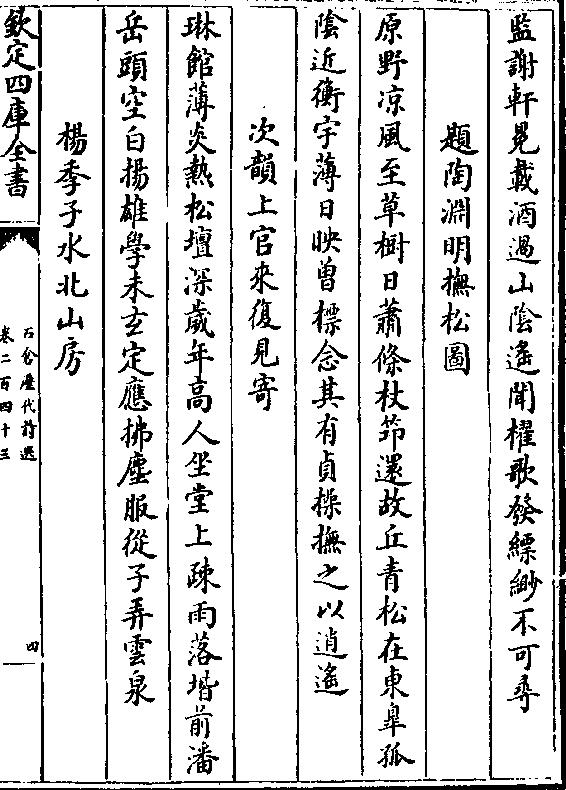 監謝軒冕載酒過山陰遙聞櫂歌發縹緲不可尋
題陶淵明撫松圖
原野凉風至草樹日蕭條杖笻還故丘青松在東臯孤
陰近衡宇薄日映曽標念其有貞操撫之以逍遙
次韻上官來復見寄
琳館薄炎熱松壇深歲年高人坐堂上疎雨落堦前潘
岳頭空白揚雄學未玄定應拂塵服從子弄雲泉
楊季子水北山房
欽定四庫全書
石倉歷代詩選
卷二百四十三
四